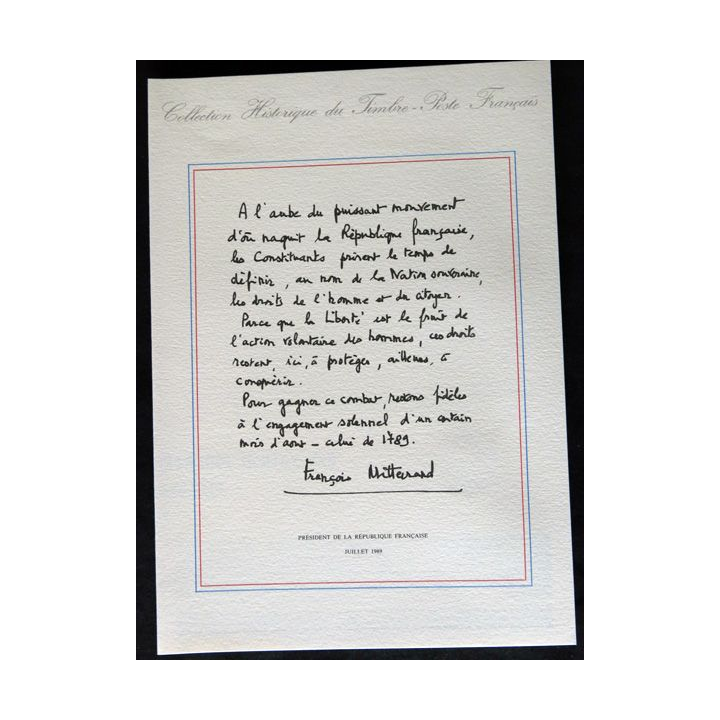 Collection Historique du Timbre-Poste Français
A l'aube du puissant mouvement
d'où naquit la République française,
les Constituants prirent le temps de
définir, au nom de la Nation souveraine,
les droits de l'homme et du citoyen.
Parce que la Liberté est le fruit de
l'action volontaire des hommes, ces droits
restent, ici, à protéger, ailleurs, à
conquérir.
Pour gagner ce combat, restons fidèles
à l'engagement solennel d'un certain
mois d'août - celui de 1789.
François Mitterrand
PRÉSIDENT DE LA RÉPUBLIQUE FRANÇAISE
JUILLET 1989